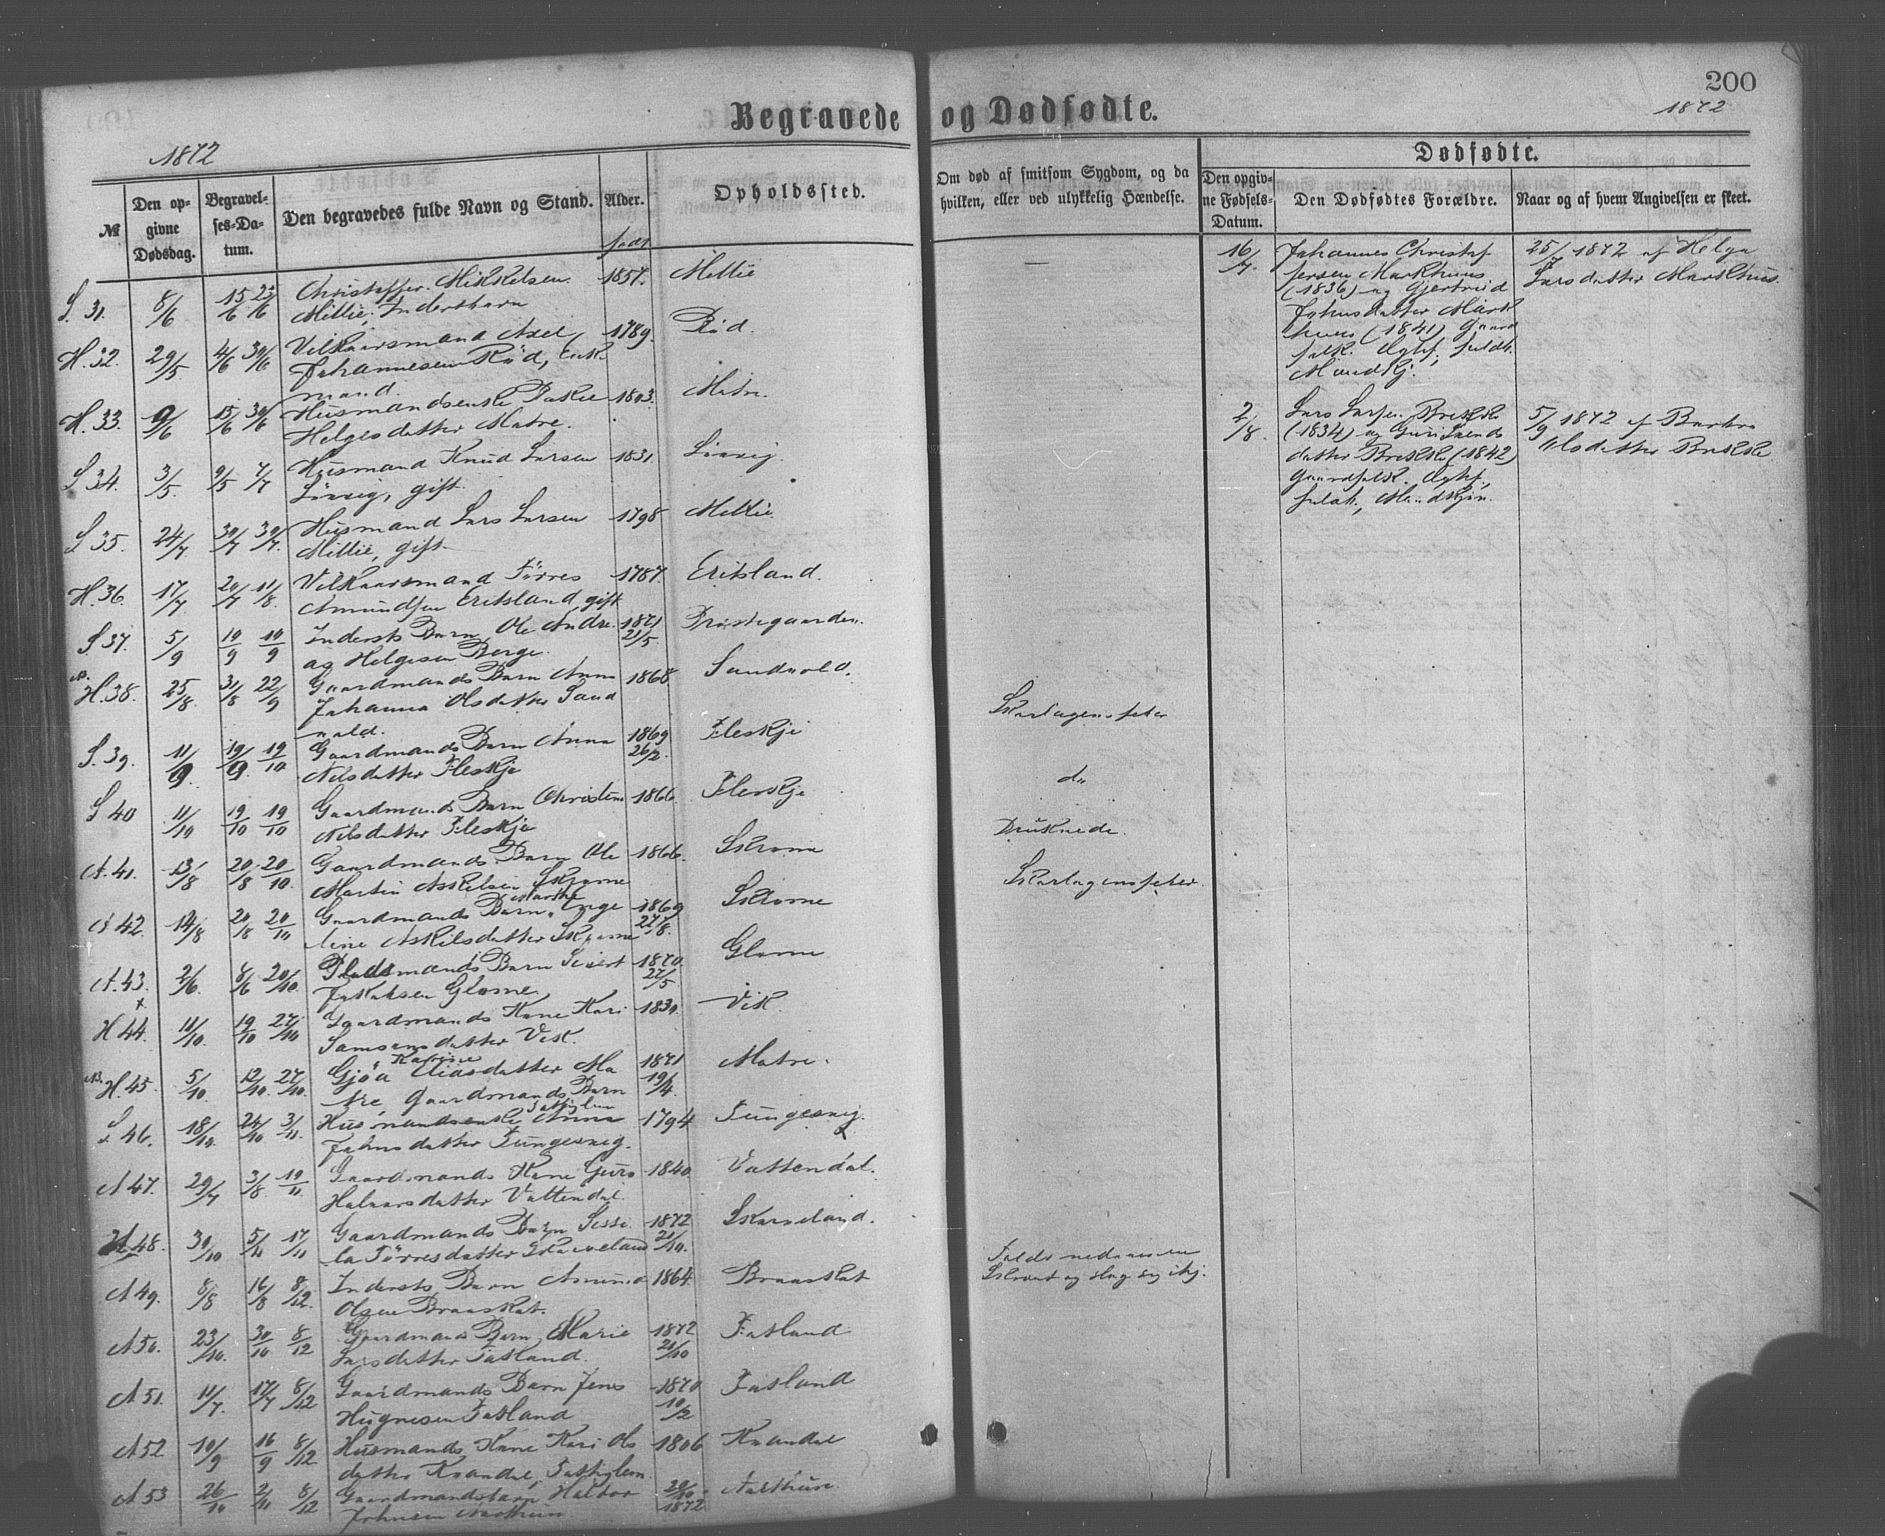 Begravede og Dødfødte.
200
1872
1872
№
Den opgivne Dødsdag.
Begravelses-Datum.
Den begravedes fulde Navn og Stand.
Alder.
født
Opholdssted.
Om død af smitsom Sygdom, og da hvilken, eller ved ulykkelig Hændelse.
Dødfødte.
Den opgivne Fødsels-Datum.
Den Dødfødtes Forældre.
Naar og af hvem Angivelsen er skeet.
S. 31. 8/6 15/6 23/6 Christoffer Mikkelsen 1857. Millie
Millie, Inderstbarn
H. 32. 29/5 4/6 30/6 Vilkaarsmand Axel 1789. Rød.
Johannesen Rød, Enke
mand.
H. 33. 9/6 15/6 30/6 Husmandsenke 1803. Matre.
Helgesdatter Matre.
S. 34. 3/5. 9/5 7/7 Husmand Knud Larsen 1831. Løvvig.
Løvvig, gift.
S. 35. 24/7 30/7 30/7. Husmand Lars Larsen 1798 Millie
Millie, gift
H. 36. 17/7. 20/7 11/8. Vilkaarsmand Tørres 1787. Eritsland.
Amundsen Eritsland, gift
S. 37. 5/9 10/9 10/9 Indersts Barn Ole Andre 1871 21/5 Prestegaarden.
as Helgesen Berge.
H. 38. 25/8. 31/8 22/9 Gaardmands Barn Anna 1868 Sandvold. Skarlagensfeber
Johanna Olsdatter Sand
vold.
S. 39. 11/9 19/9. 19/10 Gaardmands Barn Anna 1869 26/2. Fleskje do
Nilsdatter Fleskje
S. 40 11/10 19/10 19/10 Gaardmands Barn Christine 1866. Fleskje Druknede.
Nilsdatter Fleskje
A. 41. 13/8 20/8 20/10. Gaardmands Barn Ole 1866. Skrome Skarlagensfeber.
Martin Askelsen
A. 42. 14/8 20/8 20/10 Gaardmands Barn, Marthe Inge 1869 27/8.
line Askilsdatter
A. 43. 2/6. 8/6 20/10. Pladsmands Barn Sivert 1870. 27/5 Glome
Jakobsen Glome.
H. 44. 11/10. 19/10 27/10 Gaardmands Kone Kari 1830. Vik.
Samsonsdatter Vik.
H. 45. 5/10 12/10 27/10. Gjøa Karine Eliasdatter Ma 1871 19/4. Matre.
tre, Gaardmands Barn
S. 46. 18/10. 24/10 3/11. Husmandsenke Anna Fattiglem 1794 Tungesvig.
Johnsdatter Tungesvig.
A 47. 29/7 3/8. 10/11. Gaardmands Kone Guro 1840. Vattendal.
Halvorsdatter Vattendal.
H. 48. 30/10 5/11 17/11 Gaardmands Barn Sisse 1872 21/10. Skarveland.
la Tørresdatter Skarveland
A 49. 8/8 16/8 8/12. Indersts Barn Amund 1864. Braaskat Faldt ned
Olsen Braaskat. og slog sig ihj.
A 50. 23/10. 30/10 8/12 Gaardmands Barn, Marie 1872 21/10 Fatland
Larsdatter Fatland.
A 51. 11/7. 17/7 8/12 Gaardmands Barn Jens 1870 10/2 Fatland
Hugnesen Fatland
A 52 10/9 16/9 8/12 Husmands Kone Kari Ols 1806 Kvandal
datter Kvandal, Fattiglem
A 53 26/10 2/11 8/12 Gaardmandsbarn Haldor 20/10 1872
Johnsen
16/7. Johannes Christof
fersen Markhuus
(1836) og Gjertrud
Johnsdatter Mark
huus (1841) Gaard
folk. Ægtef., fuldt.
Mandkj.
25/7 1872 af Helga
Larsdatter Markhuus.
2/8. Lars Larsen Brekke
(1834) og Guri Svends
datter Brekke (1842)
Gaardfolk. Ægtef,
Mandkjøn.
5/9 1872 af Barbro
Olsdatter Brekke